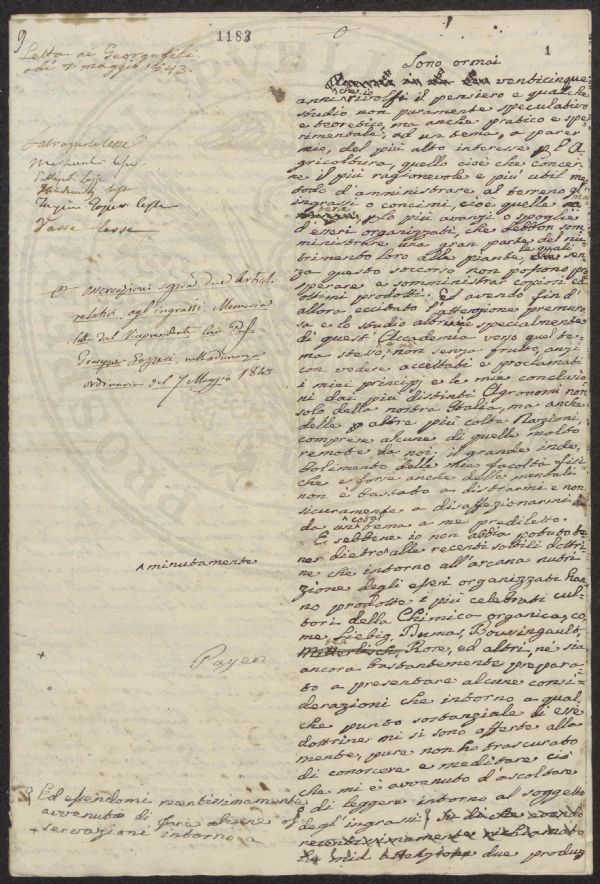 9
1183
1
Letta ai Georgofili
a dì 7 maggio 1843.
Osservazioni sopra due articoli
relativi agl'ingrassi. Memoria
letta dal Vicepresidente Cav. Prof.
Giuseppe Gazzeri nell'adunanza
ordinaria del 7 Maggio 1843
Sono ormai
venticinque
anni che io rivolsi il pensiero e qualche
studio non puramente speculativo
e teoretico, ma anche pratico e spe=
rimentale, ad un tema, a parer
mio, del più alto interesse p. l'A
gricoltura, quello cioè che concer=
ne il più ragionevole e più util me=
todo d'amministrare al terreno gl'
ingrassi o concimi, cioè quelle ma
terie, p. lo più avanzi o spoglie
d'esseri organizzati, che debbon som
ministrare una gran parte del nu=
trimento loro alle piante, le quali sen
za questo soccorso non potrono
sperare e somministrar copiosi ed
ottimi prodotti. Ed avendo fin d'
allora eccitato l'attenzione premuro
sa e lo studio altrui e specialmente
di quest'Accademia verso quel te=
ma stesso, non senza frutto, anzi
con vedere accettati e proclamati
i miei principj e le mie conclusio
ni dai più distinti Agronomi non
solo della nostra Italia, ma anche
delle altre più colte Nazioni,
comprese alcune di quelle molto
remote da noi; il grande inde=
bolimento delle mie facoltà fisi=
che e forse anche delle mentali
non è bastato a distrarmi e non
sicuramente a disaffezionarmi
da un tema a me prediletto.
E sebbene io non abbia potuto te=
ner dietro alle recenti sottili dottri
ne che intorno all'arcana nutri
zione degli esseri organizzati han
no prodotte i più celebrati cul=
tori della Chimica organica, co
me Liebig, Dumas, Boussingault,
Rose, ed altri, ne sia
ancora bastantemente prepara=
to a presentare alcune consi=
derazioni che intorno a qual
che punto sostanziale d'esse
dottrine mi si sono offerte alla
mente, pure non ho trascurato
di conoscere e meditare ciò
che mi è avvenuto d'ascoltare
o di leggere intorno al soggetto
degl'ingrassi.
due produz
^ minutamente
+
Payen
Ed essendomi recentissimamente
avvenuto di fare alcune os
servazioni intorno a